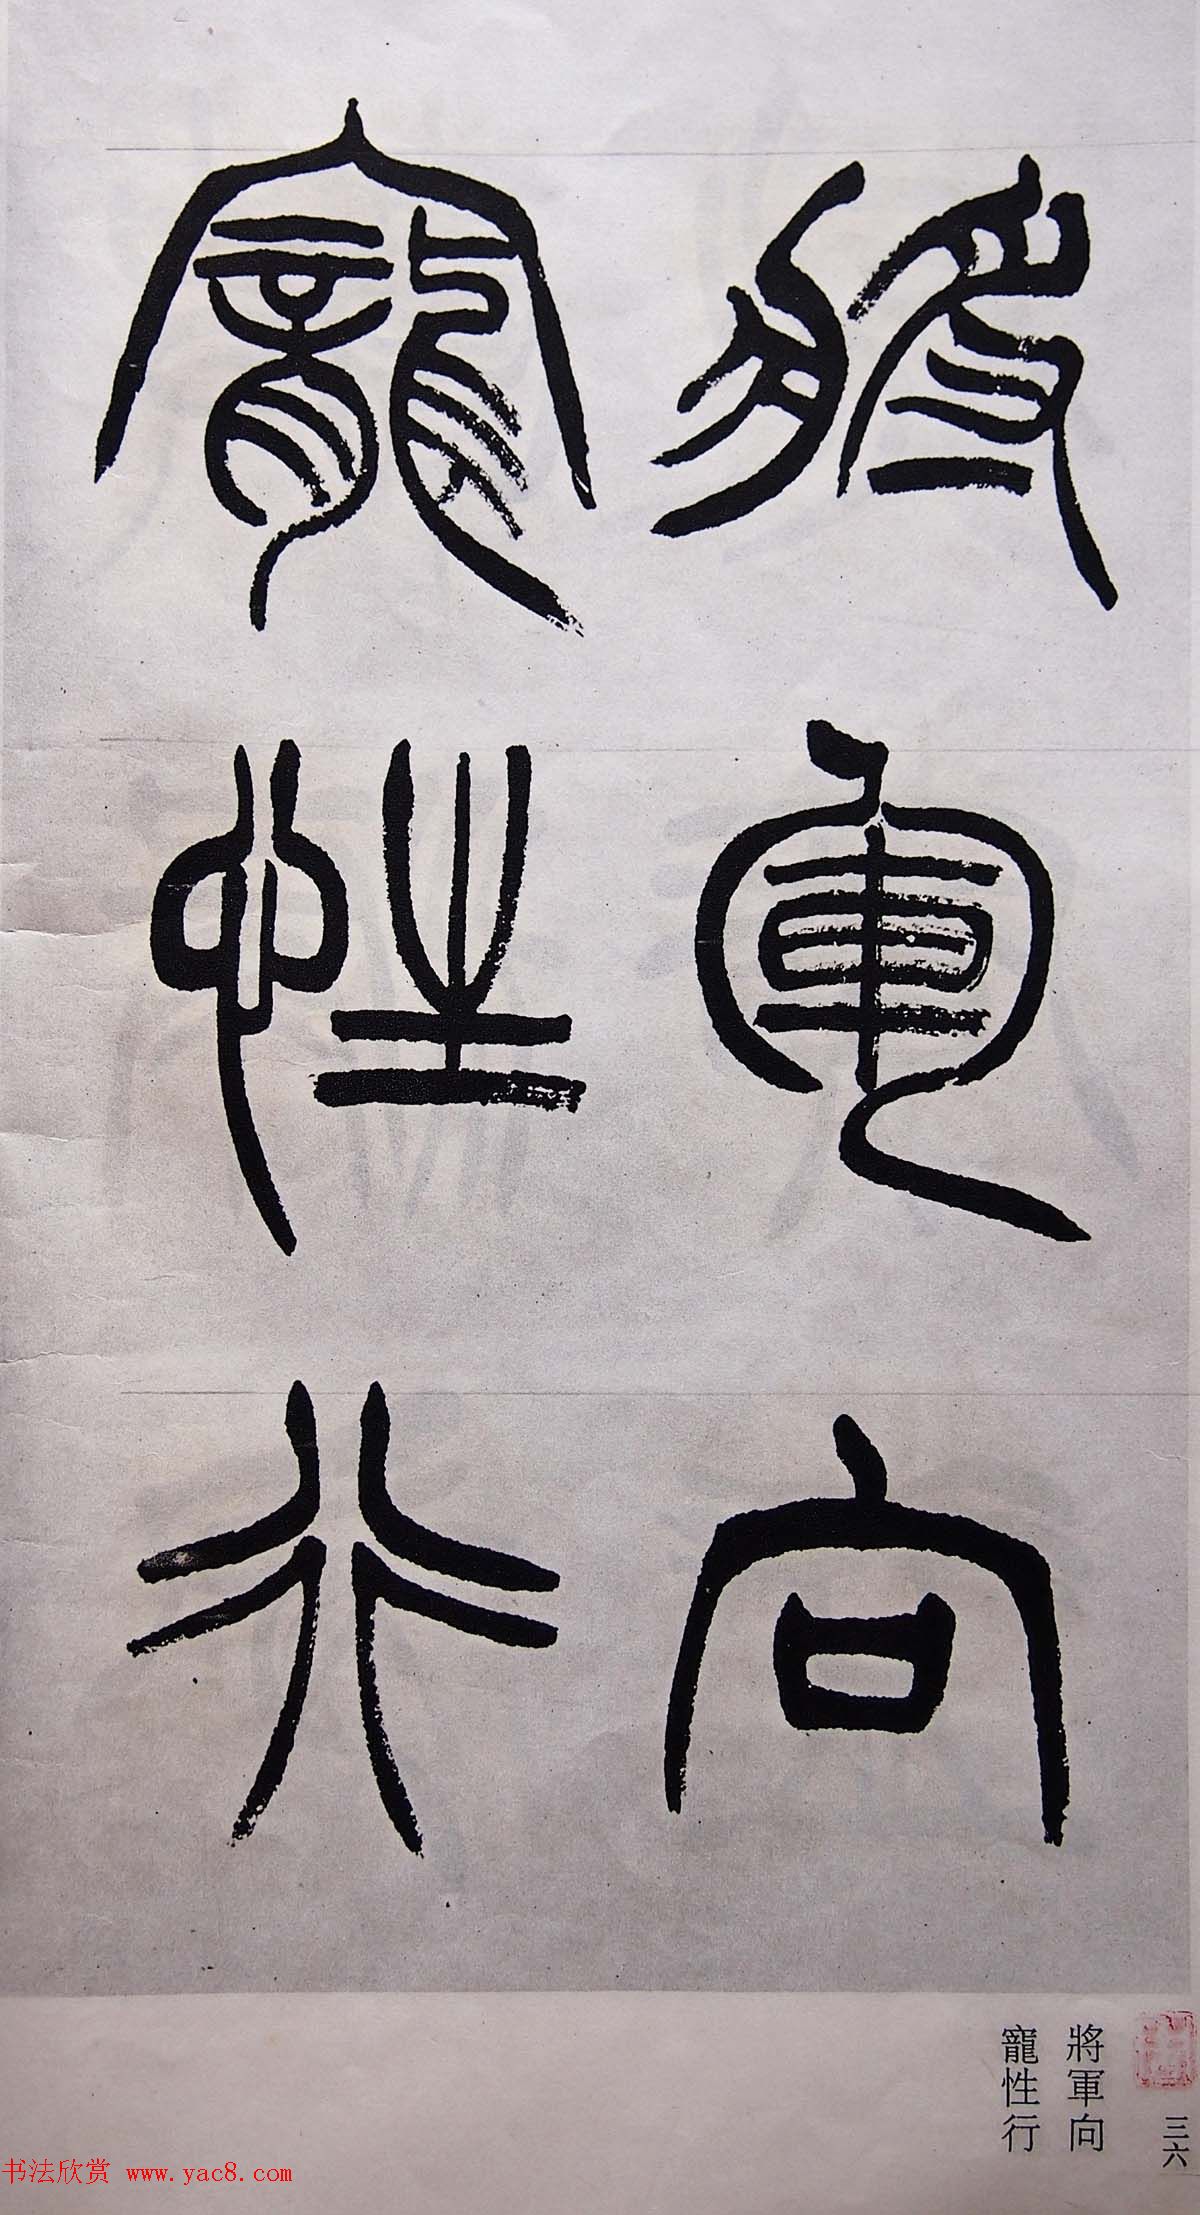 將軍向
寵性行
將軍向
寵性行
三六
书法欣赏 www.yac8.com